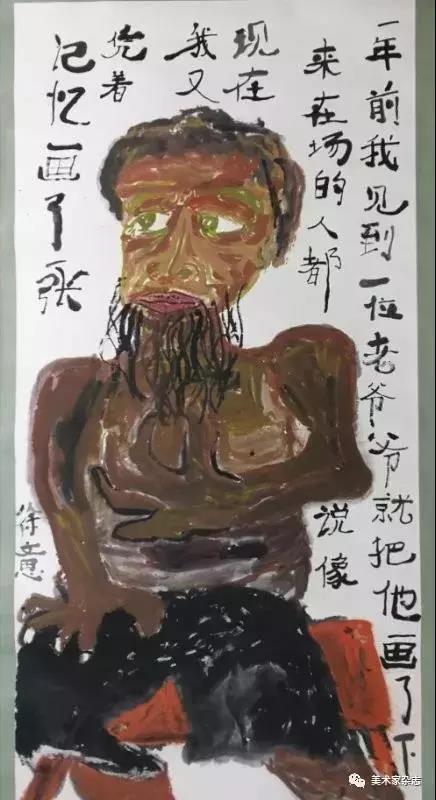 一年前我见到一位老爷爷就把他画了下
来在场的人都说像
现在
我又
凭着
记忆画了张
徐
美术家杂志